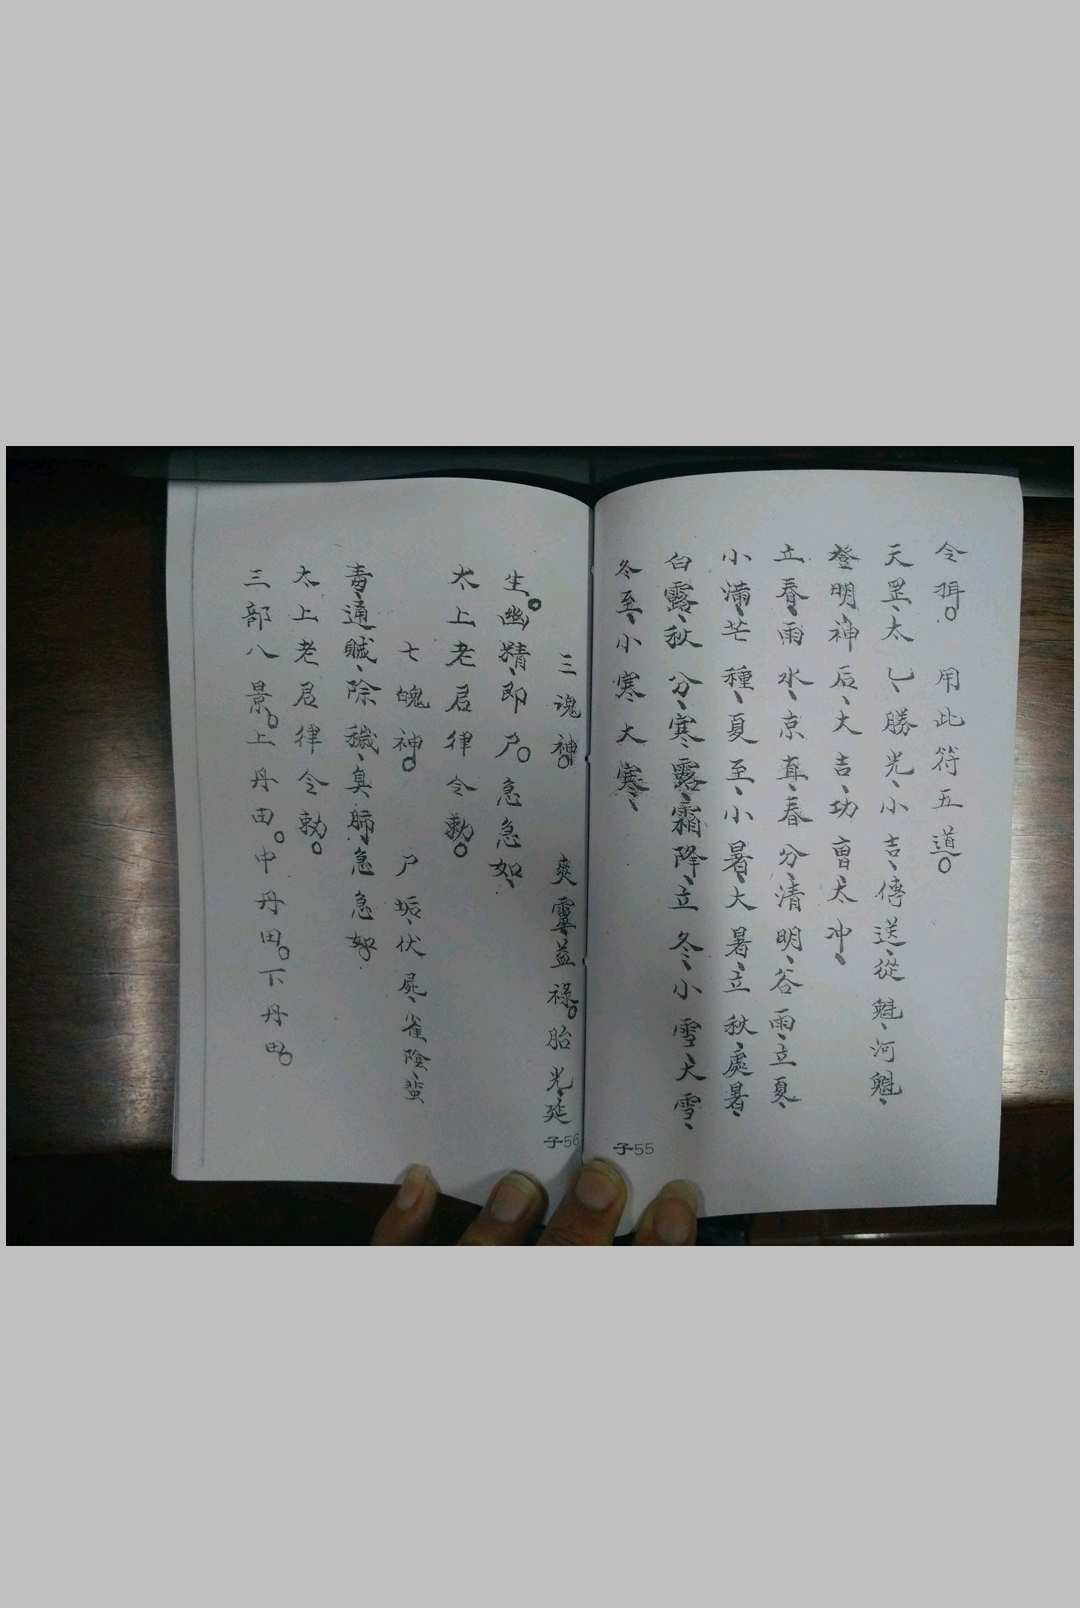 令猬。用此符五道。
天罡、太乙、勝光、小吉、傳送、從魁、河魁、
登明、神后、大吉、功曹、太冲、
立春、雨水、京直、春分、清明、谷雨、立夏、
小滿、芒種、夏至、小暑、大暑、立秋、處暑、
白露、秋分、寒露、霜降、立冬、小雪、大雪、
冬至、小寒、大寒、
子55
三魂神。爽靈益祿。胎光、延
生。幽精、即尸。急急如、
太上老君律令勅。
七魄神。尸垢、伏屍、雀陰、蜚
毒、通賊、除穢、臭肺、急急如、
太上老君律令勅。
三部八景。上丹田。中丹田。下丹田。
子56